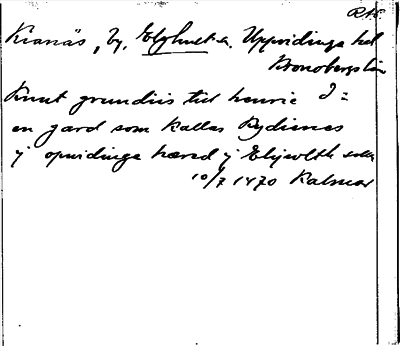 RAP.
Kianäs, by, Elghult sn. Uppvidinge hd
Kronobergs län
Knut grundiis till henric I =
en gard som kallas Rydienes
y opuidinge hæred y Elyswlth sokn
10/7 1470 Kalmar